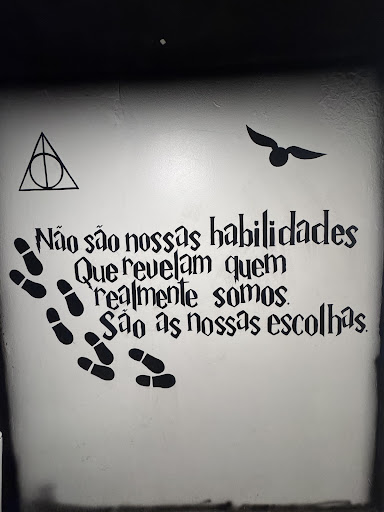 Não são nossas habilidades
Que revelam quem
realmente somos.
São as nossas escolhas.